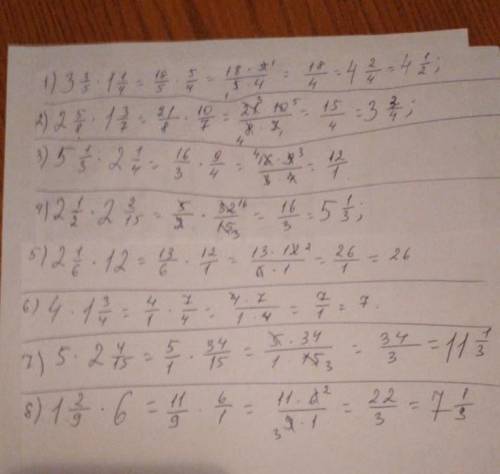 1) 3 3/5 · 1 1/4 = 18/5 · 5/4 = 18 · 5¹ / 5 · 4 = 18/4 = 4 2/4 = 4 1/2;
2) 2 5/8 · 1 3/7 = 21/8 · 10/7 = 21³ · 10⁵ / ₄8 · 7₁ = 15/4 = 3 3/4;
3) 5 1/3 · 2 1/4 = 16/3 · 9/4 = ⁴16 · 9³ / 3 · 4 = 12/1
4) 2 1/2 · 2 2/15 = 5/2 · 32¹⁶/15₃ = 16/3 = 5 1/3;
5) 2 1/6 · 12 = 13/6 · 12/1 = 13 · 12² / 6 · 1 = 26/1 = 26
6) 4 · 1 3/4 = 4/1 · 7/4 = 4 · 7 / 1 · 4 = 7/1 = 7.
7) 5 · 2 4/15 = 5/1 · 34/15 = 5 · 34 / 1 · 15₃ = 34/3 = 11 1/3
8) 1 2/9 · 6 = 11/9 · 6/1 = 11 · 6² / ₃9 · 1 = 22/3 = 7 1/3